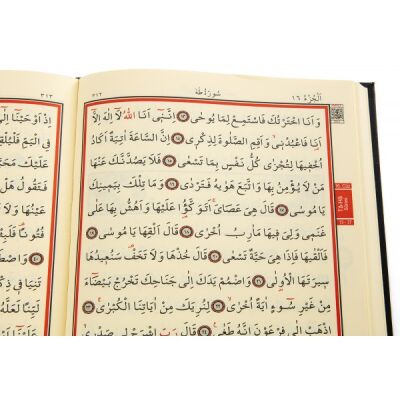 اَلْجُزْءُ ١٦ سُورَةُ طٰهٰ ٣١٢
وَاَنَا اخْتَرْتُكَ فَاسْتَمِعْ لِمَا يُوحٰى ﴿١٣﴾ اِنَّنٖٓي اَنَا اللّٰهُ لَٓا اِلٰهَ اِلَّٓا
اَنَا۬ فَاعْبُدْنٖي وَاَقِمِ الصَّلٰوةَ لِذِكْرٖي ﴿١٤﴾ اِنَّ السَّاعَةَ اٰتِيَةٌ اَكَادُ
اُخْفٖيهَا لِتُجْزٰى كُلُّ نَفْسٍ بِمَا تَسْعٰى ﴿١٥﴾ فَلَا يَصُدَّنَّكَ عَنْهَا
مَنْ لَا يُؤْمِنُ بِهَا وَاتَّبَعَ هَوٰيهُ فَتَرْدٰى ﴿١٦﴾ وَمَا تِلْكَ بِيَمٖينِكَ
يَا مُوسٰى ﴿١٧﴾ قَالَ هِيَ عَصَايَ اَتَوَكَّؤُ۬ا عَلَيْهَا وَاَهُشُّ بِهَا عَلٰى
غَنَمٖي وَلِيَ فٖيهَا مَاٰرِبُ اُخْرٰى ﴿١٨﴾ قَالَ اَلْقِهَا يَا مُوسٰى ﴿١٩﴾
فَاَلْقٰيهَا فَاِذَا هِيَ حَيَّةٌ تَسْعٰى ﴿٢٠﴾ قَالَ خُذْهَا وَلَا تَخَفْ سَنُعٖيدُهَا
سٖيرَتَهَا الْاُو۫لٰى ﴿٢١﴾ وَاضْمُمْ يَدَكَ اِلٰى جَنَاحِكَ تَخْرُجْ بَيْضَٓاءَ
مِنْ غَيْرِ سُٓوءٍ اٰيَةً اُخْرٰى ﴿٢٢﴾ لِنُرِيَكَ مِنْ اٰيَاتِنَا الْكُبْرٰى ﴿٢٣﴾
اِذْهَبْ اِلٰى فِرْعَوْنَ اِنَّهُ طَغٰى ﴿٢٤﴾ قَالَ رَبِّ اشْرَحْ لٖي صَدْرٖي
٣١٣
اِذْ اَوْحَيْنَٓا
فِي الْيَمِّ فَلْيُلْقِ
عَلَيْكَ مَحَبَّةً
فَتَقُولُ هَلْ
عَيْنُهَا وَلَا
فُتُونًا فَلَبِثْ
وَاصْطَ
تَنِيَا فٖي ذِكْرٖ
لَيِّنًا لَعَلَّهُ
عَلَيْنَٓا